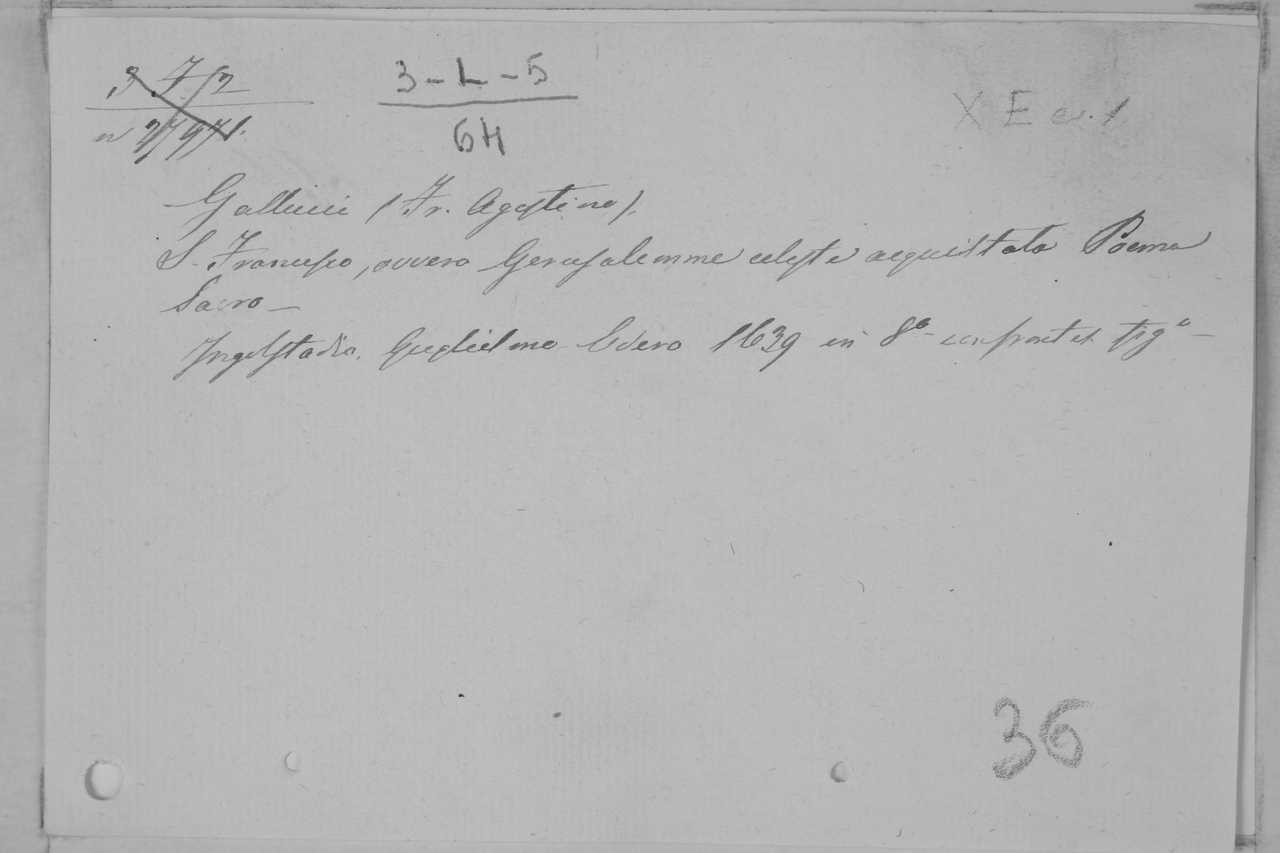 3 7/2
n 27971.
3-L-5
64
X E cr. 1
Gallucci (Fr. Agostino).
S. Francesco, ovvero Gerusalemme celeste acquistata Poema
Sacro -
Ingolstadio. Guglielmo Edero 1639 in 8º con front et fig.ª -
36